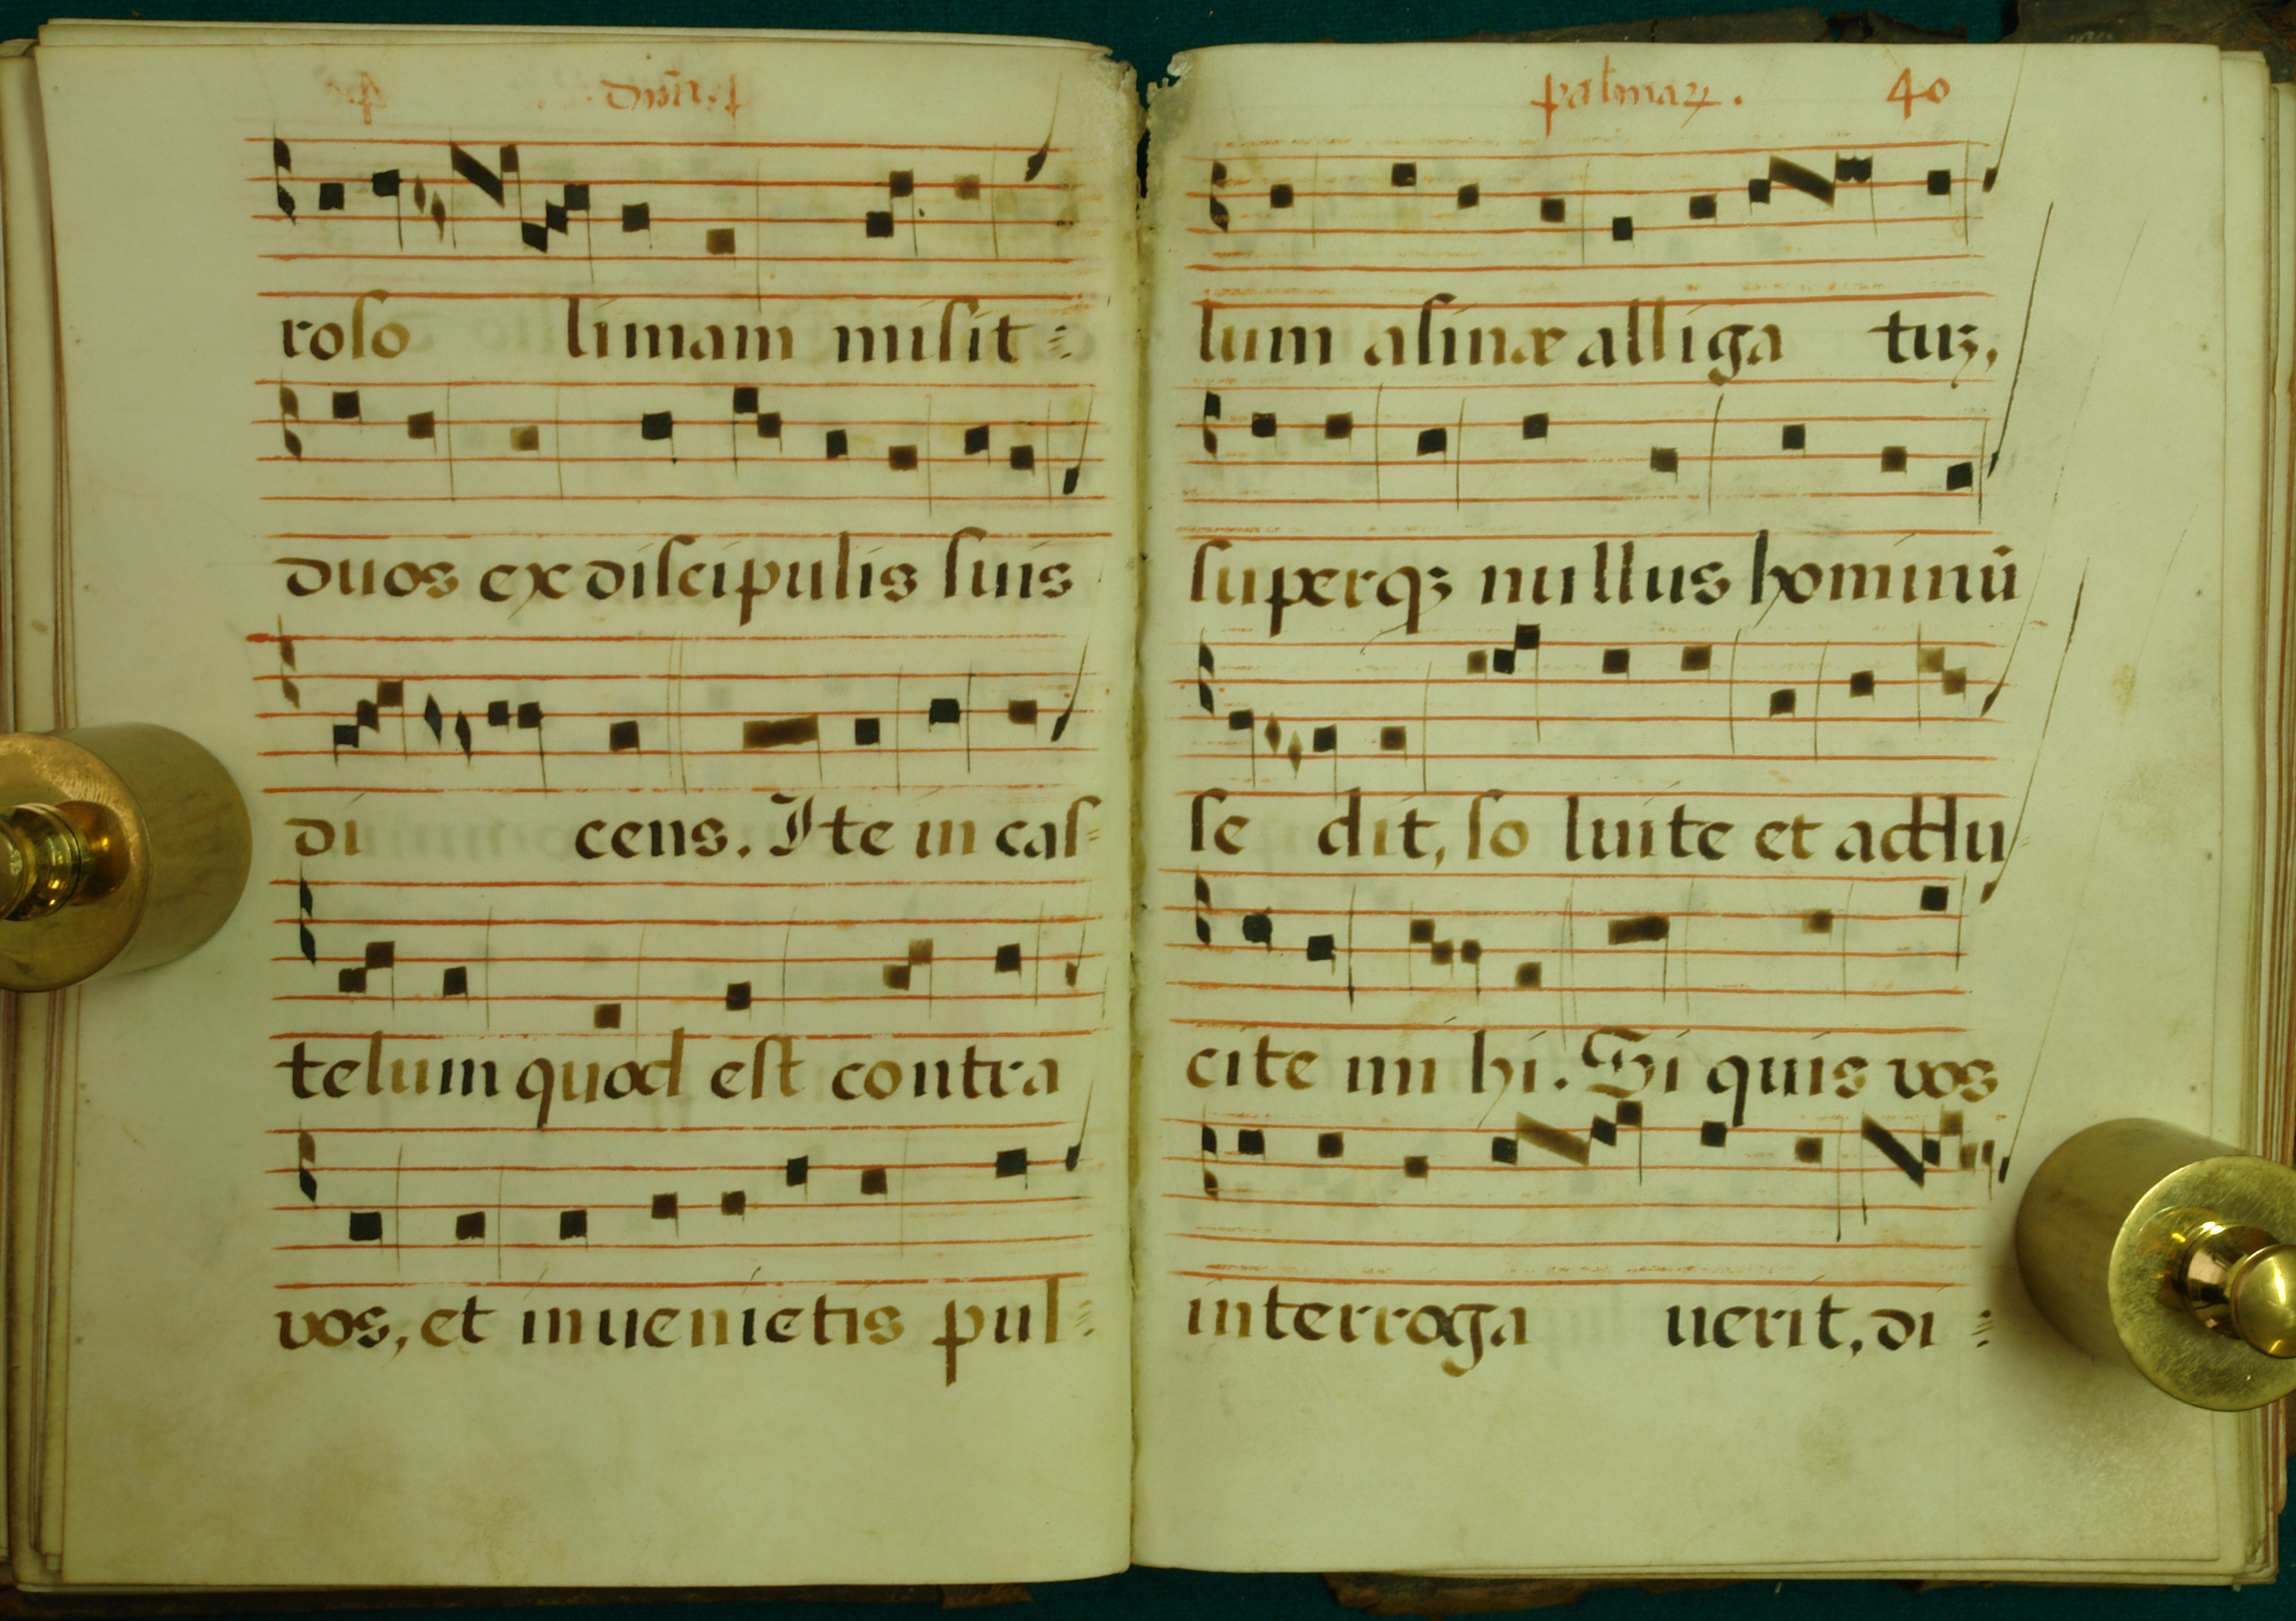 Dnīca.
roso limam misit
duos ex discipulis suis
di cens. Ite in cas
telum quod est contra
vos, et inuenietis pul
palmaꝝ. 40
lum asinæ alliga tuꝫ,
superqꝫ nullus hominū
se dit, so luite et addu
cite mi hi. Si quis vos
interroga uerit, di